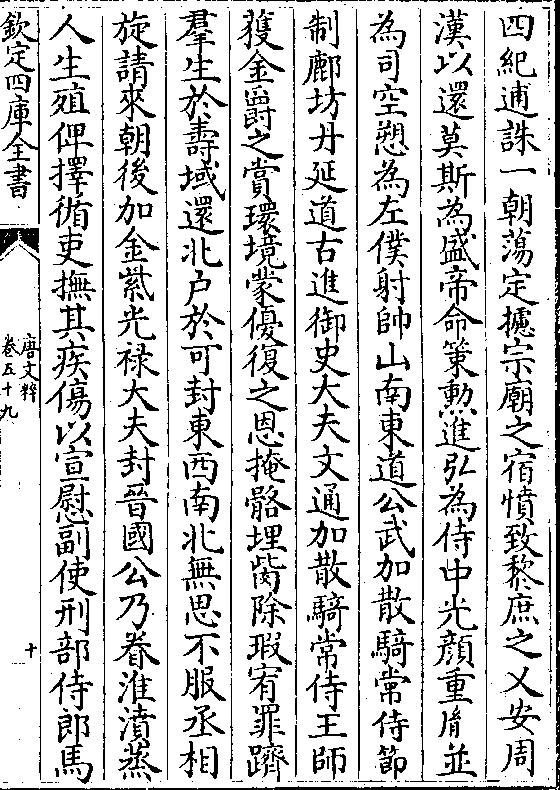 四紀逋誅一朝蕩定攄宗廟之宿憤致黎庶之乂安周
漢以還莫斯為盛帝命策勲進弘為侍中光顔重𦙍並
為司空愬為左僕射帥山南東道公武加散騎常侍節
制鄜坊丹延道古進御史大夫文通加散騎常侍王師
獲金爵之賞環境蒙優復之恩掩骼埋胔除瑕宥罪躋
羣生於壽域還北户於可封東西南北無思不服丞相
旋請來朝後加金紫光禄大夫封晉國公乃眷淮濆蒸
人生殖俾擇循吏撫其疾傷以宣慰副使刑部侍郎馬
欽定四庫全書
唐文粹
卷五十九
十